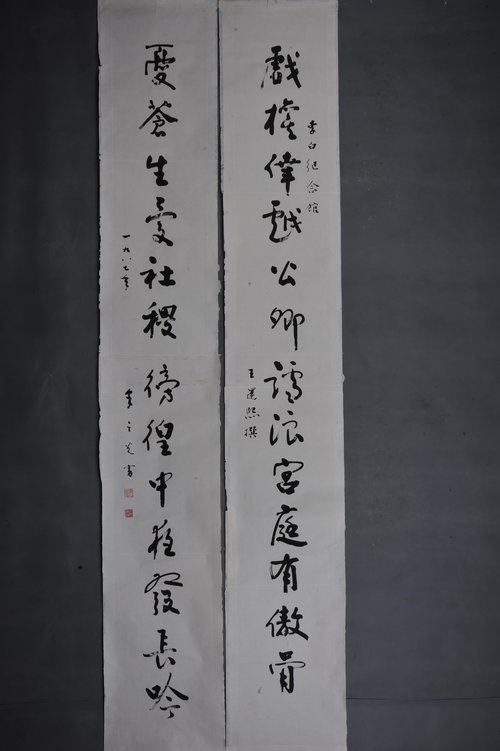 戲權倖公卿謔浪宮庭有傲骨
李白紀念館
王熙撰
憂蒼生愛社稷徬徨中發長吟
一九八七年
李書